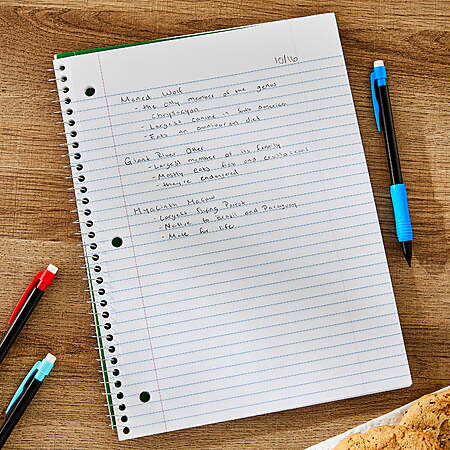 10/16
Maned Wolf
- the only member of the genus
Chrysocyon
- Largest canine in South America
- Eats an omnivorous diet
Giant River Otter
- Largest member of its family
- Mostly eats fish and crustaceans
- they're endangered
Hyacinth Macaw
- Largest flying Parrot
- Native to Brazil and Paraguay
- Mate for life